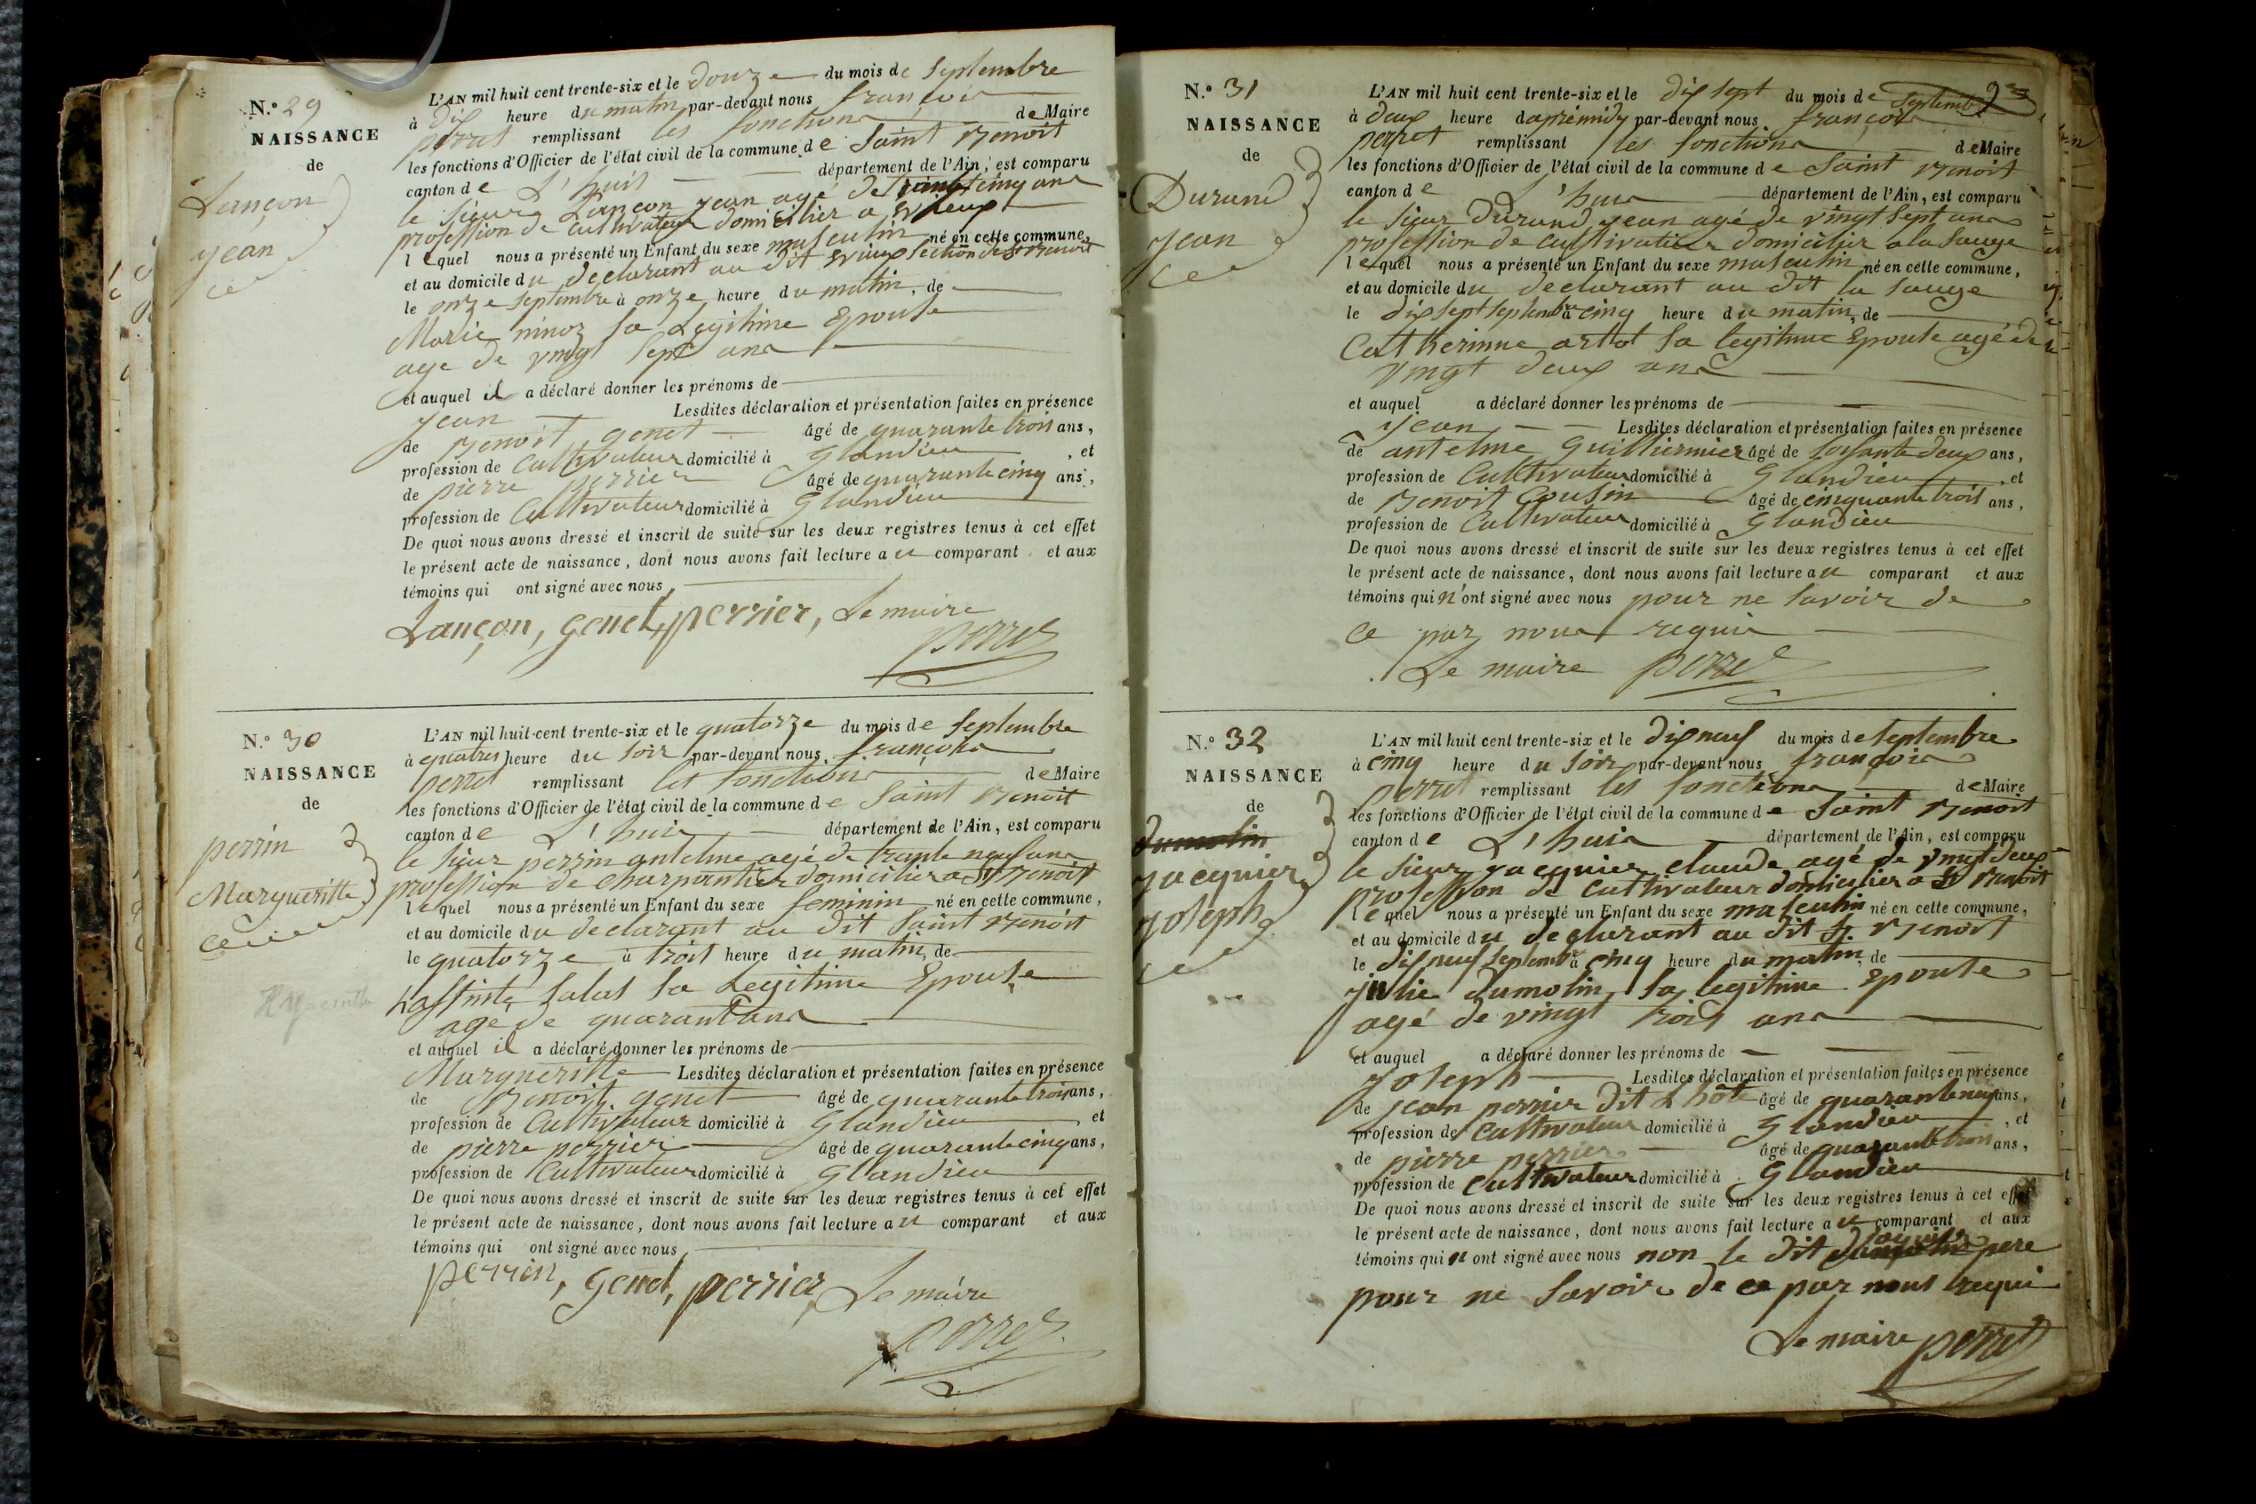 N.° 29
NAISSANCE
de
Lançon
jean
L'AN mil huit cent trente-six et le douze du mois de Septembre
à dix heure du matin par-devant nous françois
perret remplissant les fonctions de Maire
les fonctions d'Officier de l'état civil de la commune de Saint Benoit
canton de L'huis département de l'Ain, est comparu
le sieur Lançon jean agé de cinq ans
profession de cultivateur domicilier a Evieux
lequel nous a présenté un Enfant du sexe masculin né en cette commune,
et au domicile du declarant au dit Evieux section de St Benoit
le onze Septembre à onze heure du matin, de
Marie ninoz sa Legitime Epouse
age de vingt Sept ans
et auquel il a déclaré donner les prénoms de
jean Lesdites déclaration et présentation faites en présence
de Benoit genet âgé de quarante trois ans,
profession de Cultivateur domicilié à Glandieu, et
de pierre perrier âgé de quarante cinq ans,
profession de Cultivateur domicilié à Glandieu
De quoi nous avons dressé et inscrit de suite sur les deux registres tenus à cet effet
le présent acte de naissance, dont nous avons fait lecture au comparant et aux
témoins qui ont signé avec nous
Lançon, genet, perrier, Le maire
perret
N.° 30
NAISSANCE
de
perrin
Margueritte
Hyacinthe
L'AN mil huit-cent trente-six et le quatorze du mois de Septembre
à quatres heure du soir par-devant nous françois
perret remplissant les fonctions de Maire
les fonctions d'Officier de l'état civil de la commune de Saint Benoit
canton de L'huis département de l'Ain, est comparu
le sieur perrin antelme agé de trante neuf ans
profession de charpantier domicilier a St Benoit
lequel nous a présenté un Enfant du sexe feminin né en cette commune,
et au domicile du declarant au dit Saint Benoit
le quatorze à trois heure du matin, de
salas sa Legitime Epouse
agé de quarant ans
et auquel il a déclaré donner les prénoms de
Margueritte Lesdites déclaration et présentation faites en présence
de Benoit genet âgé de quarante trois ans,
profession de Cultivateur domicilié à Glandieu, et
de pierre perrier âgé de quarante cinq ans,
profession de Cultivateur domicilié à Glandieu
De quoi nous avons dressé et inscrit de suite sur les deux registres tenus à cet effet
le présent acte de naissance, dont nous avons fait lecture au comparant et aux
témoins qui ont signé avec nous
perrin, genet, perrier, Le maire
perret
N.° 31
NAISSANCE
de
Durand
jean
23
L'AN mil huit cent trente-six et le dix sept du mois de Septembre
à deux heure daprémidy par-devant nous françois
perret remplissant les fonctions de Maire
les fonctions d'Officier de l'état civil de la commune de Saint Benoit
canton de L'huis département de l'Ain, est comparu
le sieur Durand jean agé de vingt sept ans
profession de cultivateur domicilier a la sauge
lequel nous a présenté un Enfant du sexe masculin né en cette commune,
et au domicile du declarant au dit la sauge
le dix sept septembre à cinq heure du matin, de
Catherinne artot sa legitime Epouse agé de
vingt deux ans
et auquel a déclaré donner les prénoms de
jean Lesdites déclaration et présentation faites en présence
de antelme guilliermier âgé de soisante deux ans,
profession de Cultivateur domicilié à Glandieu, et
de Benoit Cousin âgé de cinquante trois ans,
profession de Cultivateur domicilié à Glandieu
De quoi nous avons dressé et inscrit de suite sur les deux registres tenus à cet effet
le présent acte de naissance, dont nous avons fait lecture au comparant et aux
témoins qui n'ont signé avec nous pour ne savoir de
ce par nous requis
Le maire perret
N.° 32
NAISSANCE
de
dumolin
jacquier
joseph
L'AN mil huit cent trente-six et le dix neuf du mois de septembre
à cinq heure du soir par-devant nous françois
perret remplissant les fonctions de Maire
les fonctions d'Officier de l'état civil de la commune de Saint Benoit
canton de L'huis département de l'Ain, est comparu
le sieur jacquier claude agé de vingt deux
profession de cultivateur domicilier a St Benoit
lequel nous a présenté un Enfant du sexe masculin né en cette commune,
et au domicile du declarant au dit St. Benoit
le dix neuf Septembre à cinq heure du matin, de
julie dumolin sa legitime Epouse
agé de vingt trois ans
et auquel a déclaré donner les prénoms de
joseph Lesdites déclaration et présentation faites en présence
de jean perrier dit L'hôte âgé de quarante ans,
profession de Cultivateur domicilié à Glandieu, et
de pierre perrier âgé de quarante trois ans,
profession de Cultivateur domicilié à Glandieu
De quoi nous avons dressé et inscrit de suite sur les deux registres tenus à cet effet
le présent acte de naissance, dont nous avons fait lecture au comparant et aux
témoins qui n ont signé avec nous non le dit jacquier pere
pour ne savoir de ce par nous requi
Le maire perret